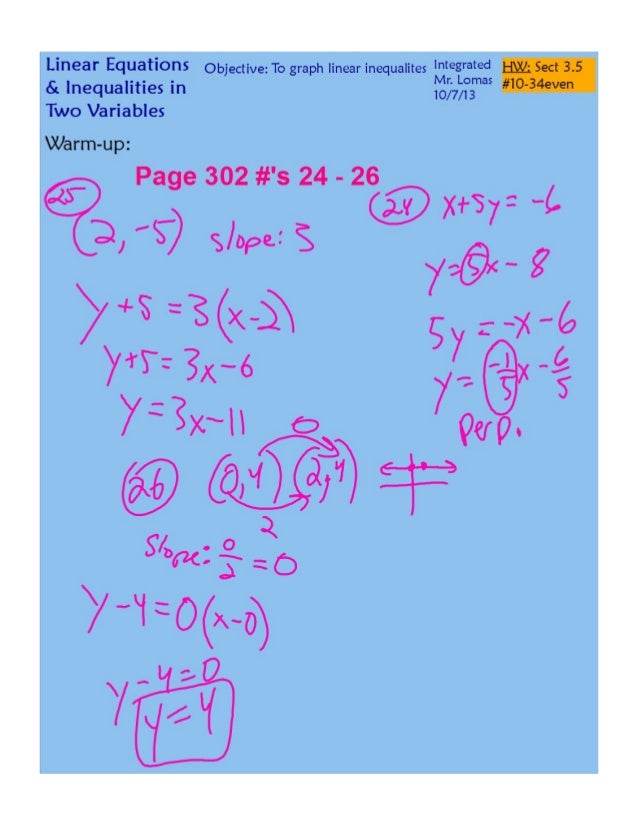 Linear Equations
& Inequalities in
Two Variables
Objective: To graph linear inequalites
Integrated
Mr. Lomas
10/7/13
HW: Sect 3.5
#10-34even
Warm-up:
Page 302 #'s 24 - 26
25
(2, -5) slope: 3
y+5 = 3(x-2)
y+5 = 3x-6
y = 3x-11
24 x+5y = -6
y = 5x - 8
5y = -x - 6
y = -1/5 x - 6/5
perp.
26 (0,4) (2,4)
0
2
Slope: 0/2 = 0
y-4 = 0(x-0)
y-4 = 0
y = 4